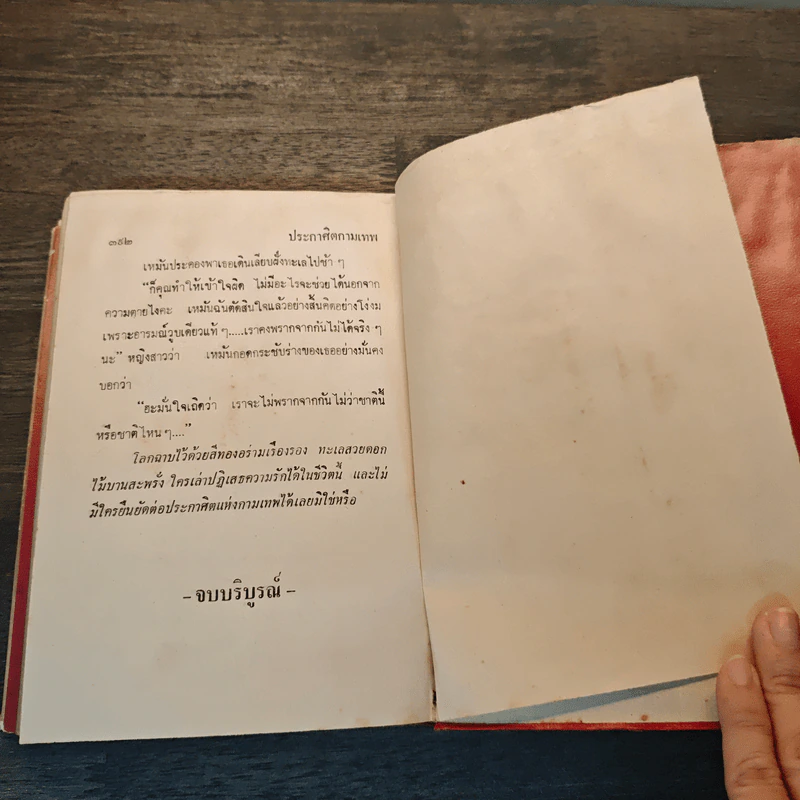 ๓๙๒ ประกาศิตกามเทพ
เหมันประคองพาเธอเดินเลียบฝั่งทะเลไปช้า ๆ
“ก็คุณทำให้เข้าใจผิด ไม่มีอะไรจะช่วยได้นอกจาก
ความตายไงคะ เหมันฉันตัดสินใจแล้วอย่างสิ้นคิดอย่างโง่งม
เพราะอารมณ์วูบเดียวแท้ ๆ.....เราคงพรากจากกันไม่ได้จริง ๆ
นะ” หญิงสาวว่า เหมันกอดกระชับร่างของเธออย่างมั่นคง
บอกว่า
“ฮะมั่นใจเถิดว่า เราจะไม่พรากจากกันไม่ว่าชาตินี้
หรือชาติไหน ๆ....”
โลกฉาบไว้ด้วยสีทองอร่ามเรืองรอง ทะเลสวยดอก
ไม้บานสะพรั่ง ใครเล่าปฏิเสธความรักได้ในชีวิตนี้ และไม่
มีใครยืนยัดต่อประกาศิตแห่งกามเทพได้เลยมิใช่หรือ
- จบบริบูรณ์ -